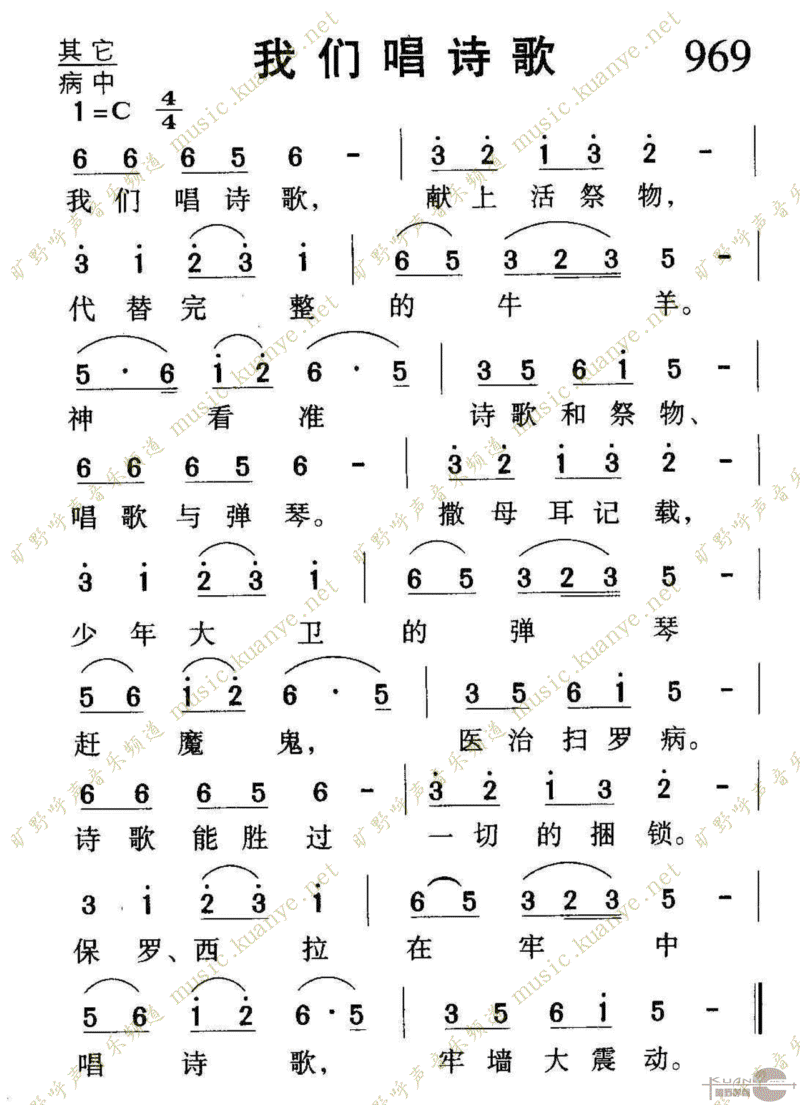 其它
病中
我们唱诗歌
969
1=C 4/4
6 6 6 5 6 - | 3̇ 2̇ 1̇ 3̇ 2̇ - |
我们唱诗歌, 献上活祭物,
3̇ 1̇ 2̇ 3̇ 1̇ | 6 5 3 2 3 5 - |
代替完整的牛羊。
5 · 6 1̇ 2̇ 6 · 5 | 3 5 6 1̇ 5 - |
神看准诗歌和祭物、
6 6 6 5 6 - | 3̇ 2̇ 1̇ 3̇ 2̇ - |
唱歌与弹琴。 撒母耳记载,
3̇ 1̇ 2̇ 3̇ 1̇ | 6 5 3 2 3 5 - |
少年大卫的弹琴
5 6 1̇ 2̇ 6 · 5 | 3 5 6 1̇ 5 - |
赶魔鬼, 医治扫罗病。
6 6 6 5 6 - | 3̇ 2̇ 1̇ 3 2̇ - |
诗歌能胜过一切的捆锁。
3 1̇ 2̇ 3̇ 1̇ | 6 5 3 2 3 5 - |
保罗、西拉在牢中
5 6 1̇ 2̇ 6 · 5 | 3 5 6 1̇ 5 - ‖
唱诗歌, 牢墙大震动。
旷野呼声音乐频道 music.kuanye.net